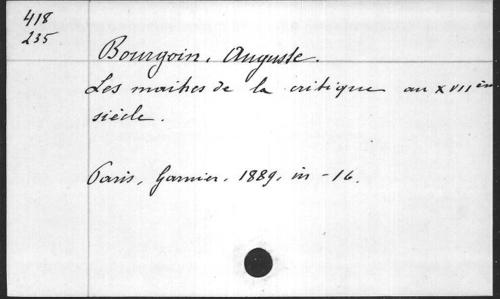 418
235
Bourgoin, Auguste.
Les maîtres de la critique au XVIIème
siècle.
Paris, Garnier, 1889, in-16.